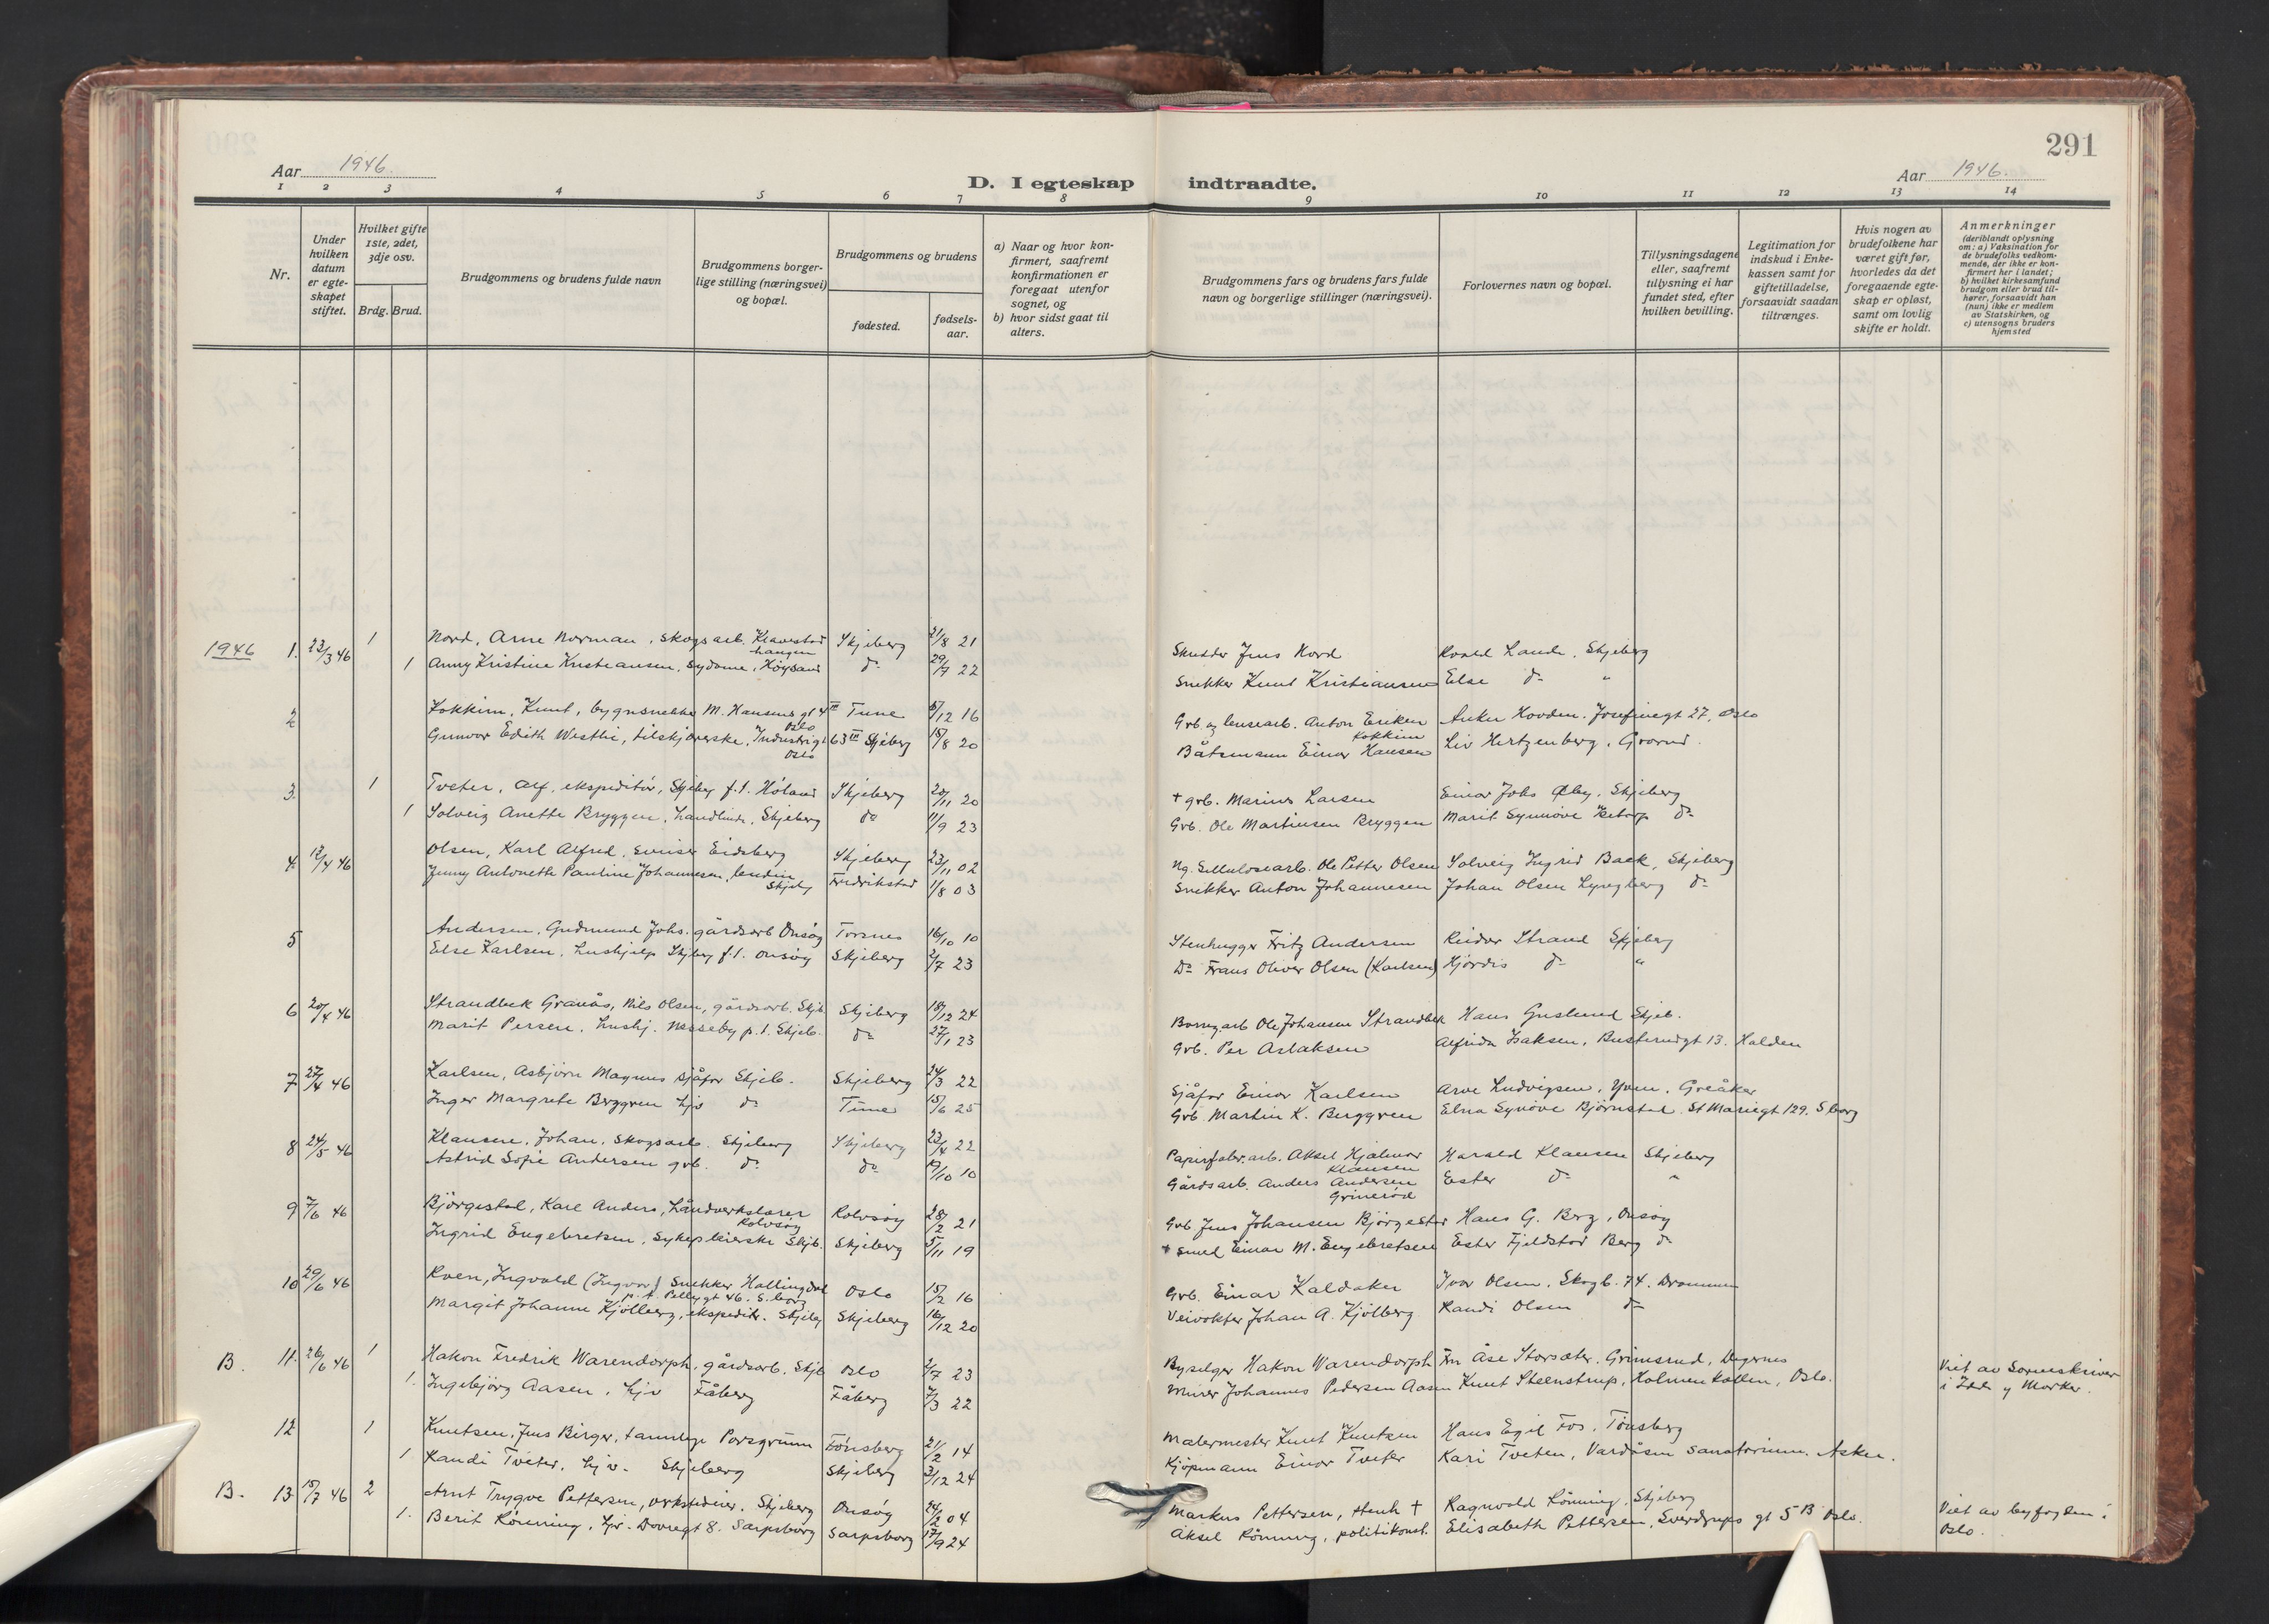 291
Aar 1946.
D. I egteskap indtraadte.
Aar 1946.
1 2 3 4 5 6 7 8 9 10 11 12 13 14
Nr.
Under hvilken datum er egteskapet stiftet.
Hvilket gifte 1ste, 2det, 3dje osv.
Brdg. Brud.
Brudgommens og brudens fulde navn
Brudgommens borgerlige stilling (næringsvei) og bopæl.
Brudgommens og brudens
fødested.
fødselsaar.
a) Naar og hvor konfirmert, saafremt konfirmationen er foregaat utenfor sognet, og
b) hvor sidst gaat til alters.
Brudgommens fars og brudens fars fulde navn og borgerlige stillinger (næringsvei).
Forlovernes navn og bopæl.
Tillysningsdagene eller, saafremt tillysning ei har fundet sted, efter hvilken bevilling.
Legitimation for indskud i Enkekassen samt for giftetilladelse, forsaavidt saadan tiltrænges.
Hvis nogen av brudefolkene har været gift før, hvorledes da det foregaaende egteskap er opløst, samt om lovlig skifte er holdt.
Anmerkninger (deriblandt oplysning om: a) Vaksination for de brudefolks vedkommende, der ikke er konfirmert her i landet; b) hvilket kirkesamfund brudgom eller brud tilhører, forsaavidt han (hun) ikke er medlem av Statskirken, og c) utensogns bruders hjemsted
1946 1. 23/3 46 1 Nord, Arne Norman, skogsarb. Skjeberg 21/8 21 Jens Nord Roald Lande, Skjeberg
1 Anny Kristine Kristiansen, sydame, Høysand do 29/7 22 Snekker Knut Kristiansen Else do "
2 Kokkim, Knut, bygnsnekker M. Hansens gt 4 III Oslo Tune 5/12 16 Grb. og lensearb. Anton Eriksen Kokkim Anker Hovden. Josefinegt 27, Oslo
Gunvor Edith Westlie, tilskjærerske, Industrigt 63 III Oslo Skjeberg 15/8 20 Båtsmann Einar Hansen Liv Hertzenberg, Grorud.
3. 1 Tveter, Alf, ekspeditør, Skjeberg f.t. Høland Skjeberg 20/11 20 + grb. Marius Larsen Einar Johs Øby, Skjeberg
1 Solveig Anette Bryggen, Skjeberg do 11/9 23 Grb. Ole Martinsen Bryggen Marit Synnøve do
4. 13/4 46 Olsen, Karl Alfred, Eidsberg Skjeberg 23/11 02 Ng. Sellulosearb. Ole Petter Olsen Solveig Ingrid Baek, Skjeberg
Jenny Antonette Pauline Johannesen, Skjeberg Fredrikstad 1/8 03 Snekker Anton Johannesen Johan Olsen Lyngberg do
5 Andersen, Gudmund Johs. gårdsarb Onsøy Torsnes 16/10 10 Stenhugger Fritz Andersen Reidar Strand Skjeberg
Else Karlsen, hushjelp Skjeberg f.t. Onsøy Skjeberg 2/7 23 Do Frans Oliver Olsen (Karlsen) Hjørdis do "
6 20/4 46 Strandbek Granås, Nils Olsen, gårdsarb. Skjb Skjeberg 18/12 24 Ole Johansen Strandbek Hans Guslund Skjeb.
Marit Persen, hushj. Nesseby p.t. Skjeb. do 27/1 23 Grb. Per Aslaksen Alfrida Isaksen, Busterudgt 13. Halden
7 27/4 46 Karlsen, Asbjørn Magnus sjåfør Skjeb. Skjeberg 24/3 22 Sjåfør Einar Karlsen Arve Ludvigsen, Yven, Greåker
Inger Margrete Berggren hjv do Tune 15/6 25 Grb. Martin K. Berggren Elna Synøve Bjørnstad. St Mariegt 129. S.borg
8 24/5 46 Klausen, Johan, skogsarb. Skjeberg Skjeberg 23/4 22 Papirfabr.arb. Aksel Hjalmar Klausen Harald Klausen Skjeberg
Astrid Sofie Andersen grb. do do 19/10 10 Gårdsarb. Anders Andersen Grinerød Ester do "
9 7/6 46 Bjørgestad, Kare Anders, håndverkslærer Rolvsøy Rolvsøy 28/2 21 Grb Jens Johansen Bjørgestad Hans G. Berg, Onsøy
Ingrid Engebretsen, sykepleierske Skjb. Skjeberg 5/11 19 + smed Einar M. Engebretsen Ester Fjeldstad Berg do
10 29/6 46 Roen, Ingvald (Ingvar) snekker Hallingdal p.t. Pellygt 46. S.borg Oslo 15/2 16 Grb. Einar Kaldaker Ivar Olsen. Skogb. 74. Drammen
Margit Johanne Kjølberg, ekspeditr. Skjeberg Skjeberg 16/12 20 Veivokter Johan A. Kjølberg Randi Olsen do
B. 11. 26/6 46 1 Hakon Fredrik Warendorph, gårdsarb. Skjb Oslo 2/7 23 Byselger Hakon Warendorph Fru Åse Storsæter. Grimsrud, Degernes Viet av Sorenskriver i Idd og Marker.
1. Ingebjørg Aasen, hjv Fåberg Fåberg 7/3 22 Murer Johannes Pedersen Aasen Knut Steenstrup, Holmenkollen, Oslo.
12 1 Knutsen, Jens Birger, tannlege Porsgrunn Tønsberg 21/2 14 Malermester Knut Knutsen Hans Egil Fos. Tønsberg
1 Randi Tveter, hjv. Skjeberg Skjeberg 31/12 24 Kjøpmann Einar Tveter Kari Tveten, Vardåsen sanatorium. Asker.
B. 13 15/7 46 2 Arnt Trygve Pettersen, verkseier, Skjeberg Onsøy 24/2 04 Markus Pettersen, stenh + Ragnvald Rönning, Skjeberg Viet av byfogden i Oslo.
1. Berit Rönning, hjv. Dovregt 8. Sarpsborg Sarpsborg 17/9 24 Aksel Rönning, politikonst. Elisabeth Pettersen, Sverdrups gt 5 B Oslo.